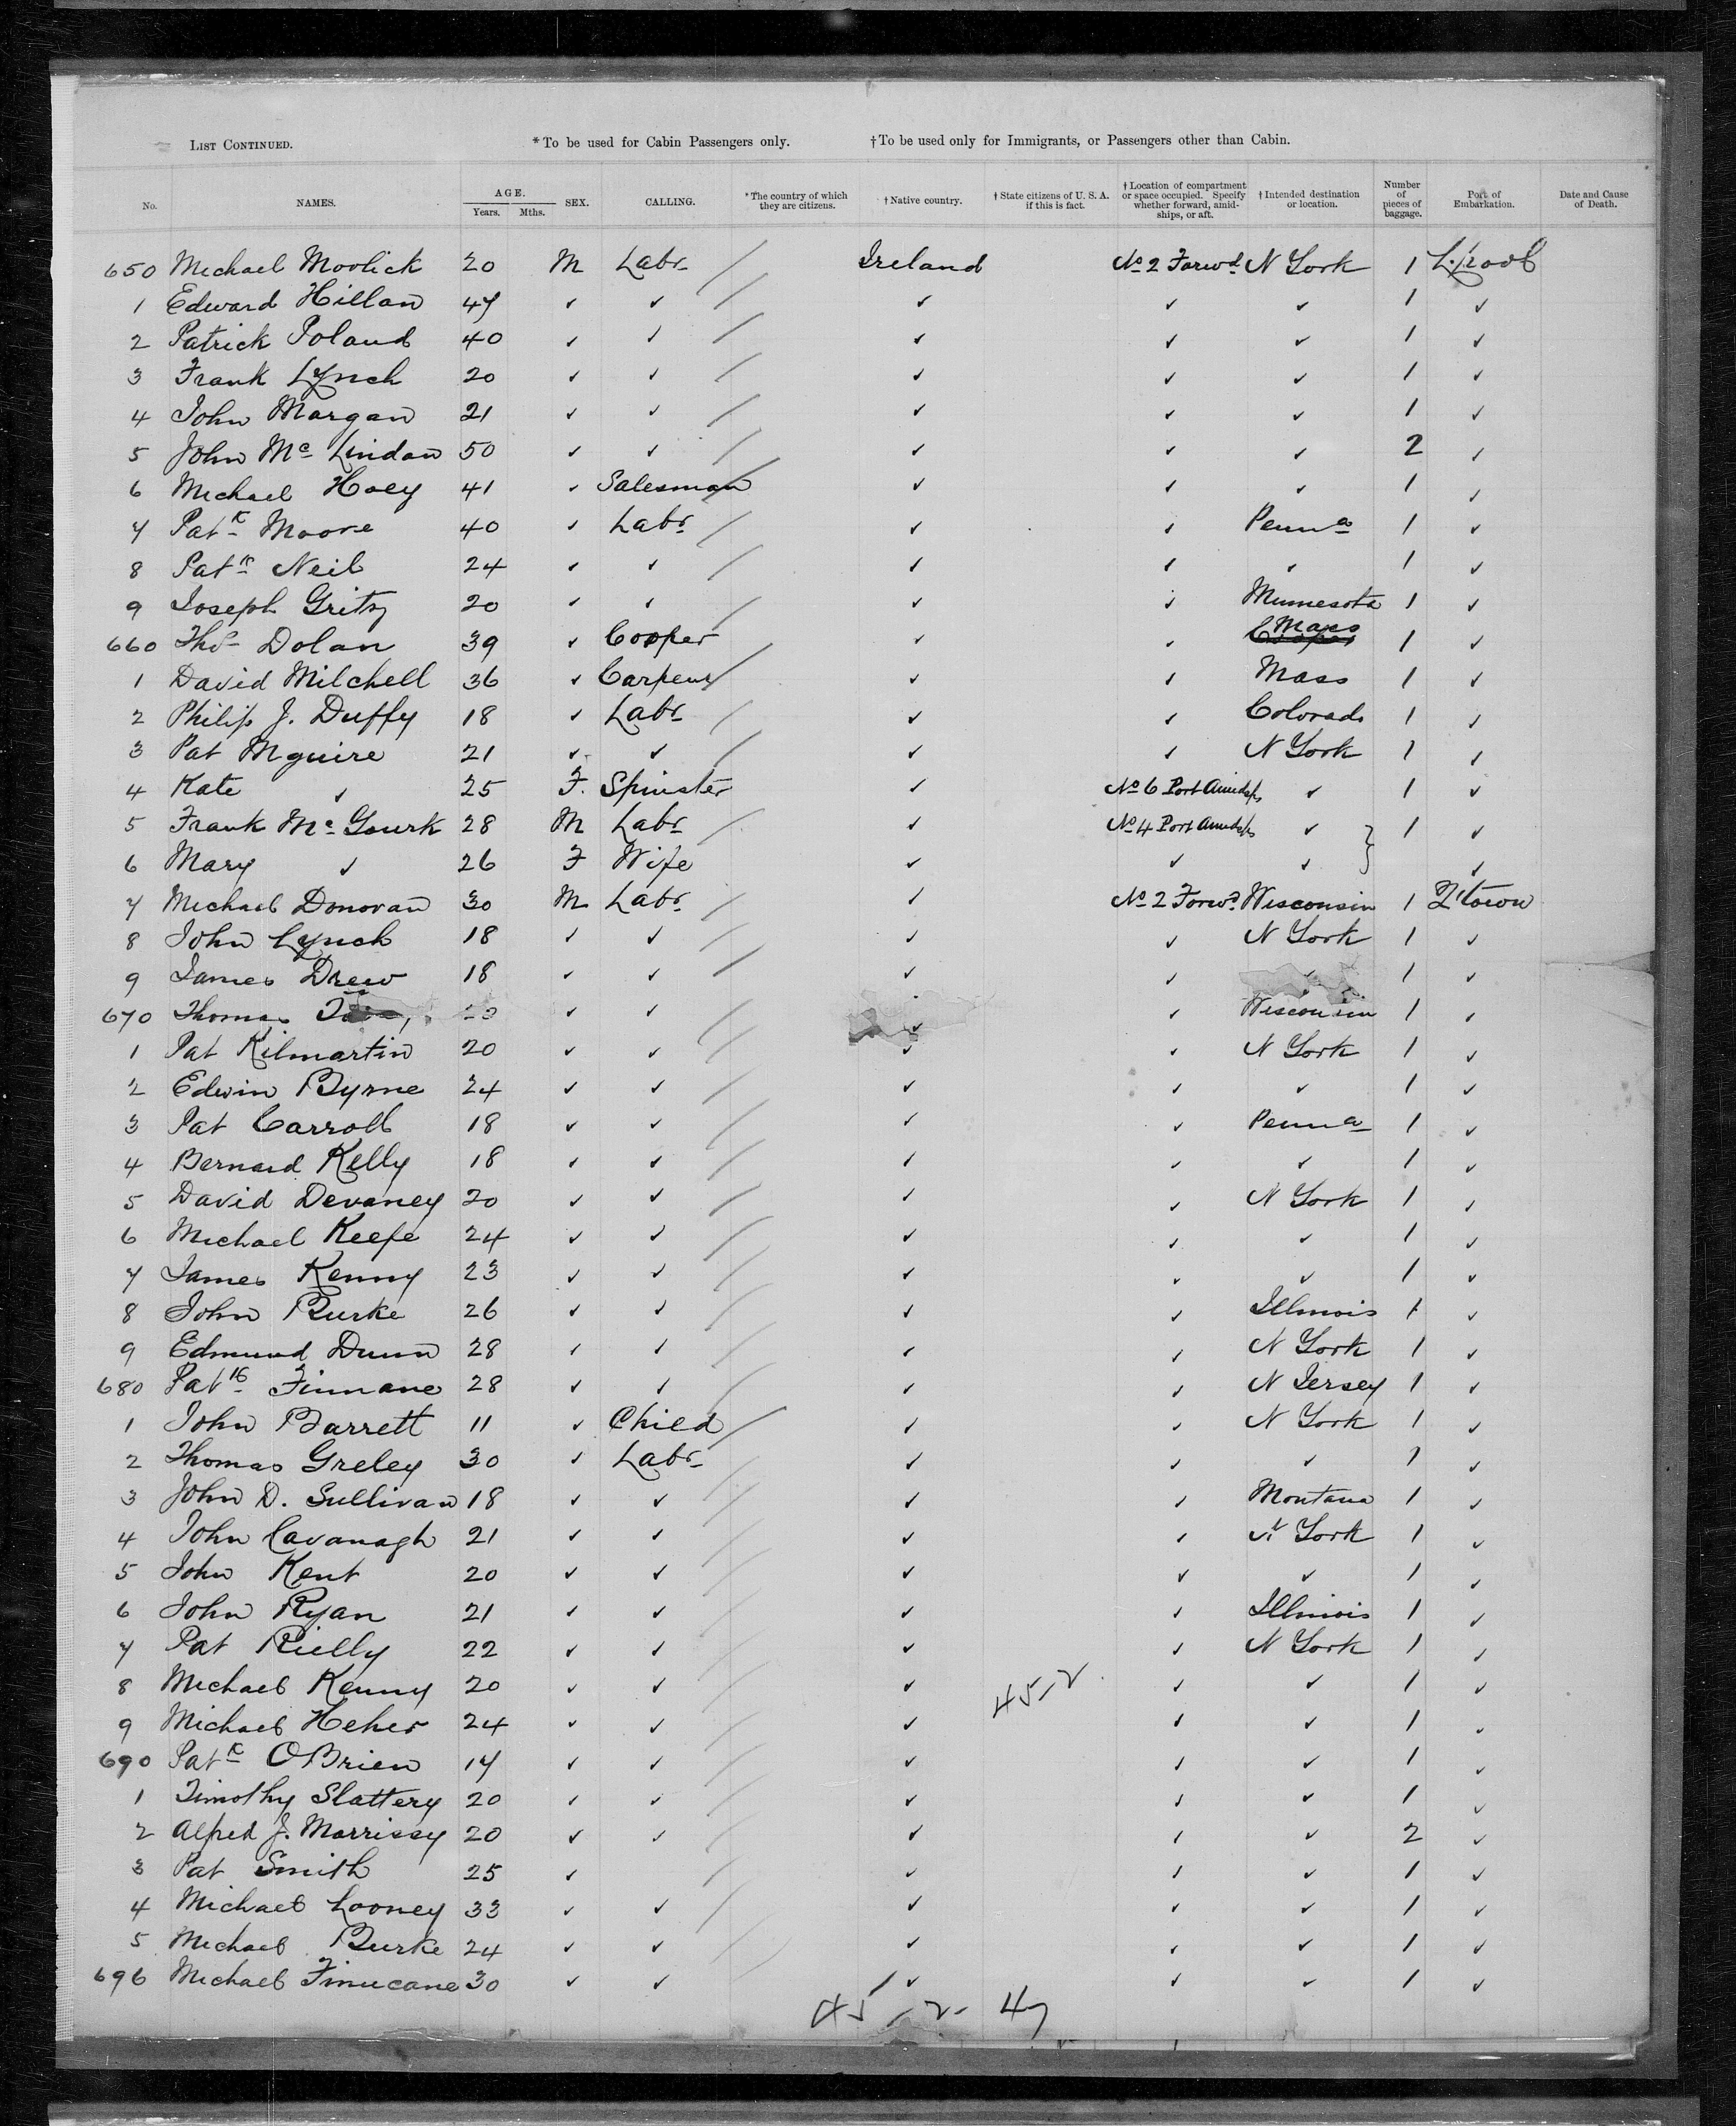 LIST CONTINUED. *To be used for Cabin Passengers only. †To be used only for Immigrants, or Passengers other than Cabin.
No. NAMES. AGE. Years. Mths. SEX. CALLING. *The country of which they are citizens. †Native country. †State citizens of U. S. A. if this is fact. †Location of compartment or space occupied. Specify whether forward, amidships, or aft. †Intended destination or location. Number of pieces of baggage. Port of Embarkation. Date and Cause of Death.
650 Michael Moolick 20 M Labr Ireland No 2 Forwd N York 1 L.pool
1 Edward Hillan 47 ✓ ✓ ✓ ✓ ✓ 1 ✓
2 Patrick Poland 40 ✓ ✓ ✓ ✓ ✓ 1 ✓
3 Frank Lynch 20 ✓ ✓ ✓ ✓ ✓ 1 ✓
4 John Morgan 21 ✓ ✓ ✓ ✓ ✓ 1 ✓
5 John Mc Lindan 50 ✓ ✓ ✓ ✓ ✓ 2 ✓
6 Michael Hoey 41 ✓ Salesman ✓ ✓ ✓ 1 ✓
7 Patk Moore 40 ✓ Labr ✓ ✓ Penna 1 ✓
8 Patk Neil 24 ✓ ✓ ✓ ✓ ✓ 1 ✓
9 Joseph Grity 20 ✓ ✓ ✓ ✓ Minnesota 1 ✓
660 Thos Dolan 39 ✓ Cooper ✓ ✓ Mass 1 ✓
1 David Milchell 36 ✓ Carpenr ✓ ✓ Mass 1 ✓
2 Philip J. Duffy 18 ✓ Labr ✓ ✓ Colorado 1 ✓
3 Pat Mguire 21 ✓ ✓ ✓ ✓ N York 1 ✓
4 Kate ✓ 25 F. Spinster ✓ No 6 Port Amidsps ✓ 1 ✓
5 Frank Mc Gourk 28 M Labr ✓ No 4 Port Amidsps ✓ } 1 ✓
6 Mary ✓ 26 F Wife ✓ ✓ ✓ ✓
7 Michael Donovan 30 M Labr ✓ No 2 Forwd Wisconsin 1 Q'town
8 John Lynch 18 ✓ ✓ ✓ ✓ N York 1 ✓
9 James Drew 18 ✓ ✓ ✓ ✓ ✓ 1 ✓
670 Thomas ✓ ✓ ✓ ✓ Wisconsin 1 ✓
1 Pat Kilmartin 20 ✓ ✓ ✓ ✓ N York 1 ✓
2 Edwin Byrne 24 ✓ ✓ ✓ ✓ ✓ 1 ✓
3 Pat Carroll 18 ✓ ✓ ✓ ✓ Penna 1 ✓
4 Bernard Kelly 18 ✓ ✓ ✓ ✓ ✓ 1 ✓
5 David Devaney 20 ✓ ✓ ✓ ✓ N York 1 ✓
6 Michael Keefe 24 ✓ ✓ ✓ ✓ ✓ 1 ✓
7 James Kenny 23 ✓ ✓ ✓ ✓ ✓ 1 ✓
8 John Burke 26 ✓ ✓ ✓ ✓ Illinois 1 ✓
9 Edmund Dunn 28 ✓ ✓ ✓ ✓ N York 1 ✓
680 Patk Finnane 28 ✓ ✓ ✓ ✓ N Jersey 1 ✓
1 John Barrett 11 ✓ Child ✓ ✓ N York 1 ✓
2 Thomas Greley 30 ✓ Labr ✓ ✓ ✓ 1 ✓
3 John D. Sullivan 18 ✓ ✓ ✓ ✓ Montana 1 ✓
4 John Cavanagh 21 ✓ ✓ ✓ ✓ N York 1 ✓
5 John Kent 20 ✓ ✓ ✓ ✓ ✓ 1 ✓
6 John Ryan 21 ✓ ✓ ✓ ✓ Illinois 1 ✓
7 Pat Rielly 22 ✓ ✓ ✓ ✓ N York 1 ✓
8 Michael Kenny 20 ✓ ✓ ✓ 45-2 ✓ ✓ 1 ✓
9 Michael Heher 24 ✓ ✓ ✓ ✓ ✓ 1 ✓
690 Patk OBrien 17 ✓ ✓ ✓ ✓ ✓ 1 ✓
1 Timothy Slattery 20 ✓ ✓ ✓ ✓ ✓ 1 ✓
2 Alfred J. Morrissy 20 ✓ ✓ ✓ ✓ ✓ 2 ✓
3 Pat Smith 25 ✓ ✓ ✓ ✓ 1 ✓
4 Michael Looney 33 ✓ ✓ ✓ ✓ ✓ 1 ✓
5 Michael Burke 24 ✓ ✓ ✓ ✓ ✓ 1 ✓
696 Michael Finucane 30 ✓ ✓ ✓ ✓ ✓ 1 ✓
45 - 2 - 47